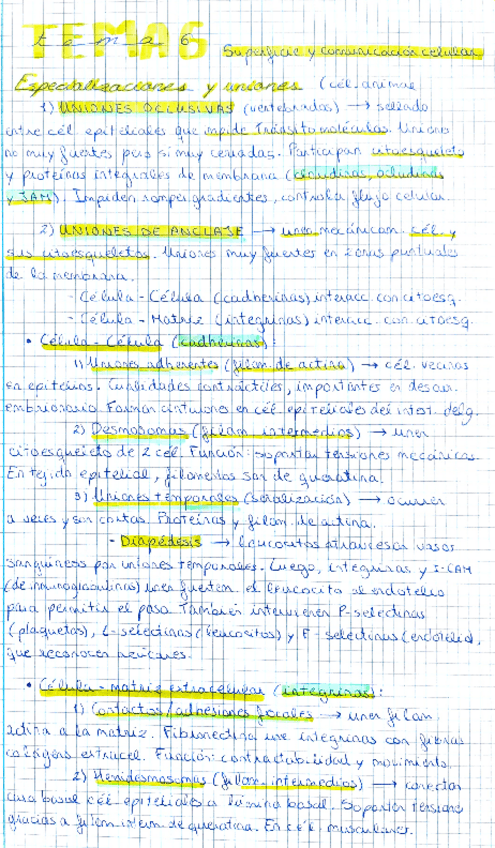 TEMA 6
tema 6
Superficie y comunicación celular
Especializaciones y uniones (cél. animal
1) UNIONES OCLUSIVAS (vertebrados) → sellado
entre cél epiteliales que impide tránsito moléculas. Uniones
no muy fuertes pero si muy cerradas. Participan citoesqueleto
y proteínas integrales de membrana (claudinas, ocludinas
y JAM). Impiden romper gradientes, controla flujo celular.
2) UNIONES DE ANCLAJE → unen mecánicam. cél. y
sus citoesqueletos. Uniones muy fuertes en zonas puntuales
de la membrana.
- Célula - Célula (cadherinas) interacc. con citoesq.
- Célula - Matriz (integrinas) interacc. con citoesq.
• Célula - Célula (cadherinas)
1) Uniones adherentes (filam. de actina) → cél. vecinas
en epitelios. Cualidades contráctiles, importantes en desarr.
embrionario. Forman cinturones en cél. epiteliales del intest. delg.
2) Desmosomas (filam. intermedios) → unen
citoesqueleto de 2 cél. Función: soportar tensiones mecánicas.
En tejido epitelial, filamentos son de queratina.
3) Uniones temporales (señalización) → ocurren
a veces y son cortas. Proteínas y filam. de actina.
- Diapédesis → leucocitos atraviesan vasos
sanguíneos por uniones temporales. Luego, integrinas y I-CAM
(de inmunoglobulinas) unen fuertem. el leucocito al endotelio
para permitir el paso. También intervienen P-selectinas
(plaquetas), L-selectinas (leucocitos) y E-selectinas (endotelio),
que reconocen azúcares.
• Célula - matriz extracelular (integrinas):
1) Contactos/adhesiones focales → unen filam.
actina a la matriz. Fibronectina une integrinas con fibras
colágeno extracel. Función: contractabilidad y movimiento.
2) Hemidesmosomas (filam. intermedios) → conectan
cara basal cél. epiteliales a lámina basal. Soportan tensiones
gracias a filam. interm. de queratina. En cél. musculares.